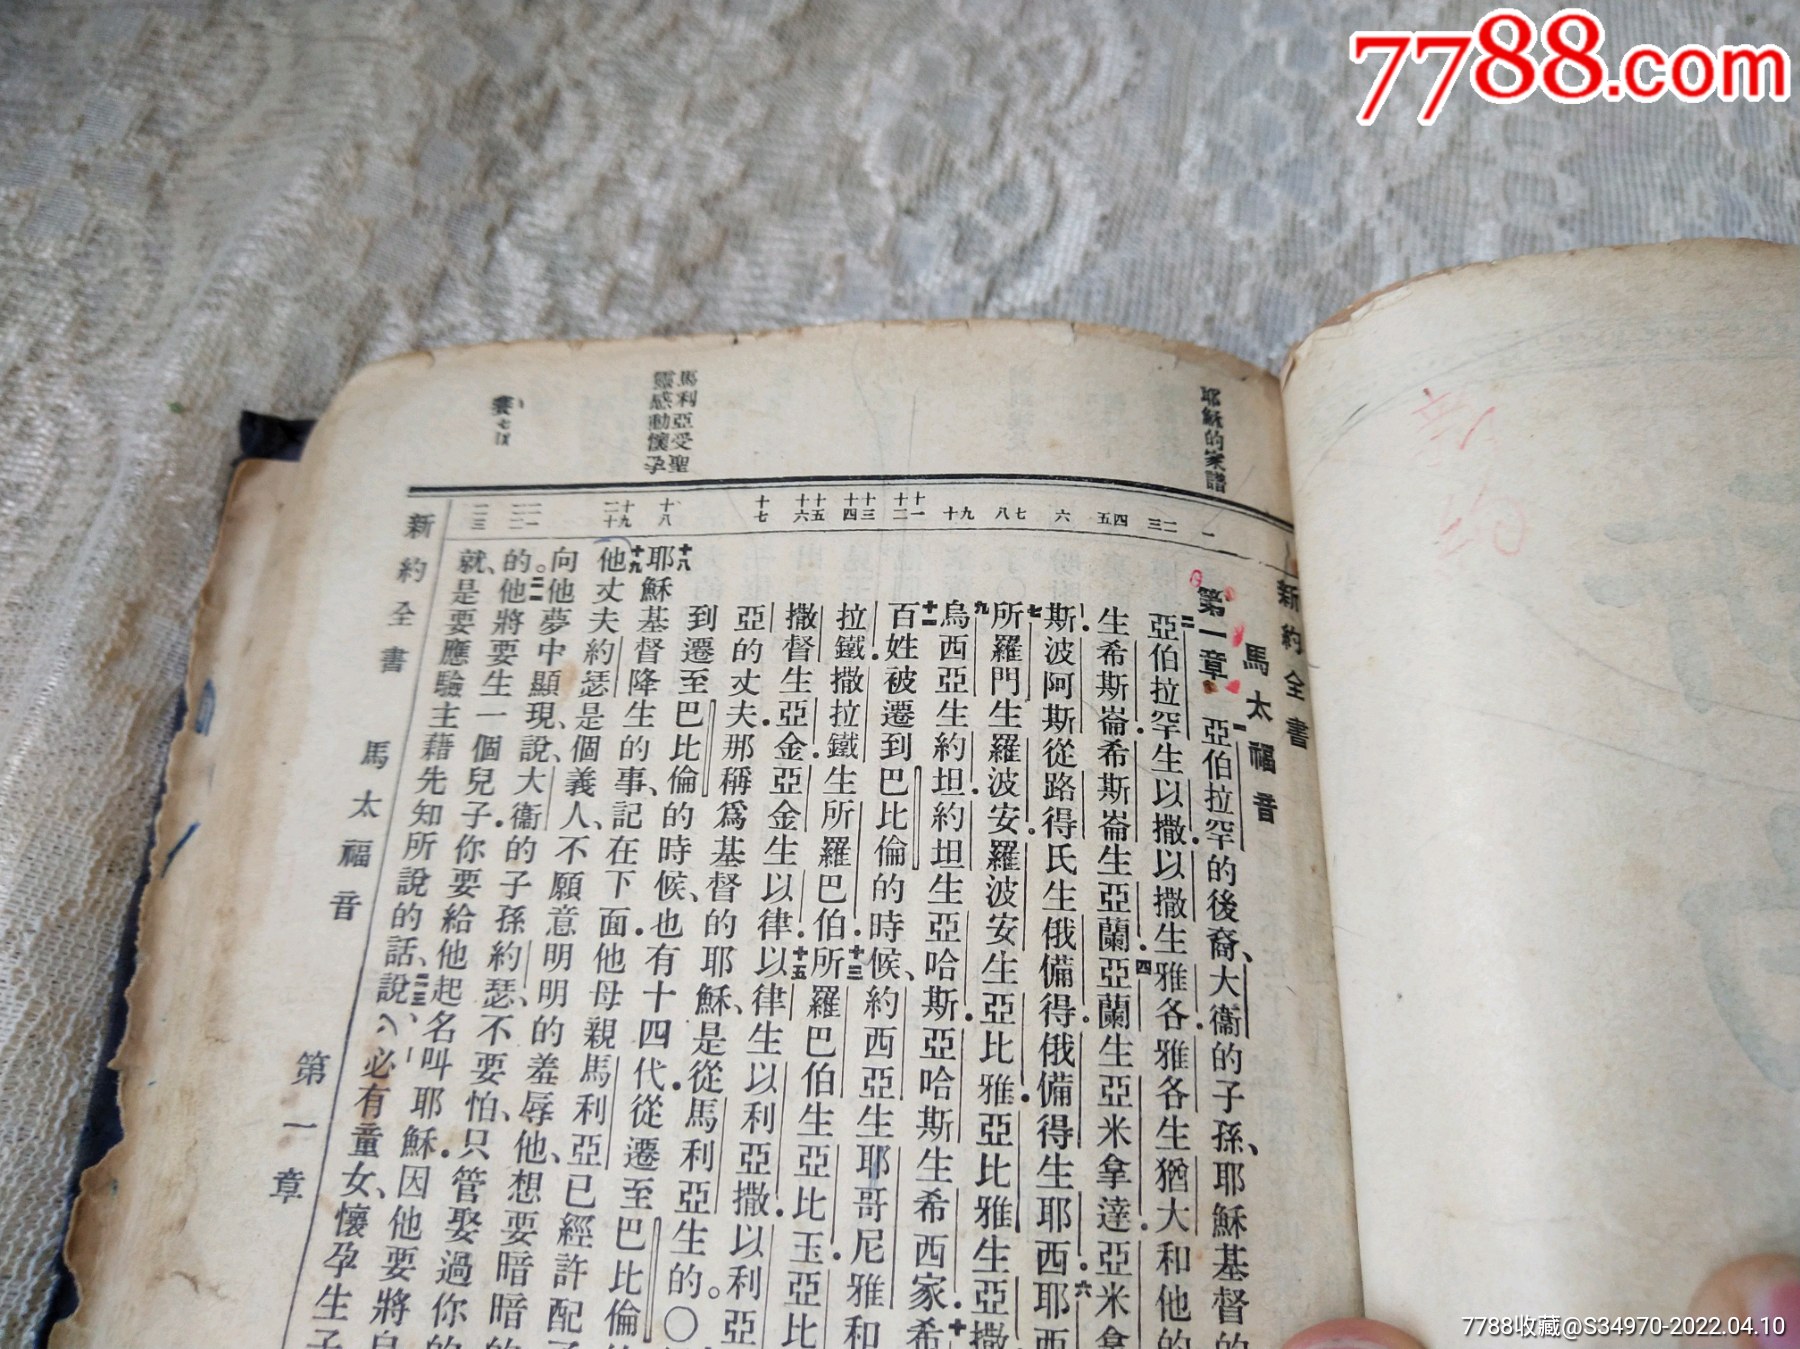 7788.com
耶穌的家譜
馬利亞受聖
靈感動懷孕
新約全書
馬太福音
第一章 一亞伯拉罕的後裔、大衞的子孫、耶穌基督的
二亞伯拉罕生以撒.以撒生雅各.雅各生猶大和他的
生希斯崙.希斯崙生亞蘭.四亞蘭生亞米拿達.亞米拿
斯.波阿斯從路得氏生俄備得.俄備得生耶西.六耶西
七所羅門生羅波安.羅波安生亞比雅.亞比雅生亞撒
九烏西亞生約坦.約坦生亞哈斯.亞哈斯生希西家.十希
十一百姓被遷到巴比倫的時候、約西亞生耶哥尼雅和
拉鐵.撒拉鐵生所羅巴伯.十三所羅巴伯生亞比玉.亞比
撒督生亞金.亞金生以律.十五以律生以利亞撒.以利亞
亞的丈夫.那稱爲基督的耶穌、是從馬利亞生的。〇
到遷至巴比倫的時候、也有十四代.從遷至巴比倫
十八耶穌基督降生的事、記在下面.他母親馬利亞已經許配
十九他丈夫約瑟是個義人、不願意明明的羞辱他、想要暗暗的
向他夢中顯現、說、大衞的子孫約瑟、不要怕、只管娶過你的
的。二一他將要生一個兒子.你要給他起名叫耶穌.因他要將自
就是要應驗主藉先知所說的話、二三說、必有童女、懷孕生子
新約全書
馬太福音
第一章
一
二三
四五
六
七八
九十
十一
十二
十三
十四
十五
十六
十七
十八
十九
二十
二一
二二
二三
7788收藏@S34970-2022.04.10